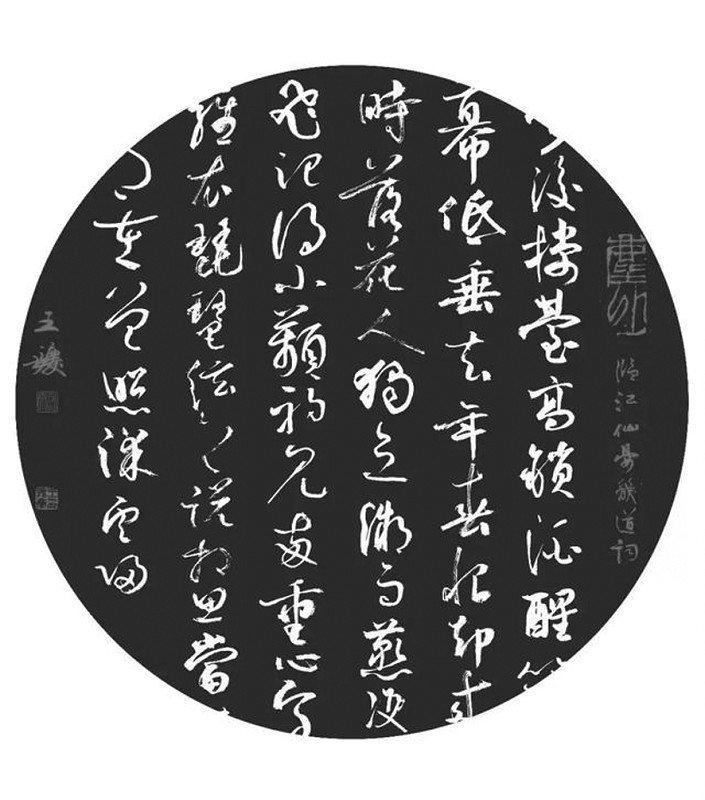 臨江仙晏幾道詞
夢後樓臺高鎖酒醒簾
幕低垂去年春恨却來
時落花人獨立微雨燕雙
飛記得小蘋初見兩重心字
羅衣琵琶弦上説相思當
月在曾照彩雲歸
王